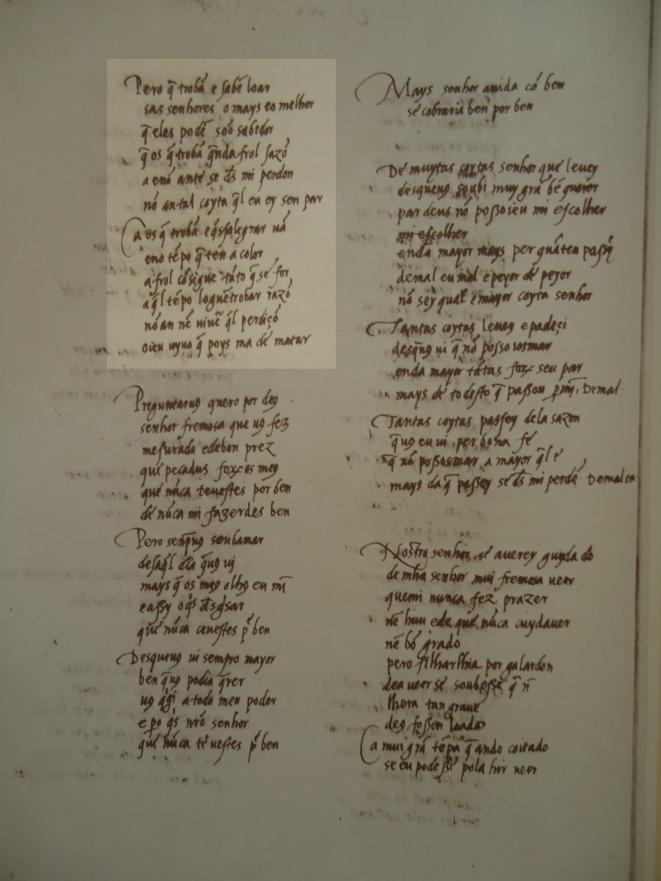 Pero q̃ trobã e sabẽ loar
sas senhores o mays eo melhor
q̃ eles podẽ soõ sabedor
q̃ os q̃ trobã q̃nda frol sazõ
a enõ ante se d̃s mi perdon
nõ an tal coyta q̃l eu ey sen par
Ca os q̃ trobã e q̃ssalegrar uã
eno tẽpo q̃ ten a color
a frol cõsigue tãto q̃ se for
aq̃l tẽpo logu trobar razõ
nõ an nẽ uiuẽ q̃l perdiçõ
oieu uyuo q̃ poys ma dẽ matar
Preguntaruꝯ quero por deꝯ
senhor fremosa que uꝯ fez
mesurada edebon prez
que pecadus foxos meꝯ
que nũca teuestes por ben
de nũca mi fazerdes ben
Pero senp̃uꝯ soubamar
desaq̃l dia q̃uꝯ ui
mays q̃ os meꝯ olhꝯ eu mĩ
eassy o q̃s d̃s
que nũca ceuestes p̃ ben
Desqueuꝯ ui sempro mayor
ben q̃uꝯ podia q̃rer
uꝯ q̃gi a todo meu poder
e po q̃s nr̃o senhor
que nũca teuestes p̃ ben
Mays senhor auida cõ ben
se cobraria ben por ben
De muytas coytas senhor que leuey
desqueuꝯ soubi muy grã bẽ querer
par deus nõ posso ieu mi escolher
mi escolher
enda mayor mays per quãten passey
demal eu mal e peyor de peyor
nõ sey qual e mayor coyta senhor
Tantas coytas leuey e padeçi
desq̃uꝯ ui q̃ nõ posso osmar
enda mayor tãtas foxe seu par
mays de todesto q̃ passou p̃ mĩ. Demal.
Tantas coytas passey dela sazon
q̃uꝯ eu ui per bona fe
q̃ nõ possosmar a mayor q̃l e
mays da q̃ passey se d̃s mi perdõ Demal eu
Nostro senhor se auerey guysa do
de mha senhor mui fremosa ueer
quemi nunca fez prazer
nẽ huu ede que nũca cuydauer
nẽ bõ grado
pero filharlhia por galardon
dea ueer se soubesse q̃ ñ
lhera tan graue
deꝯ fossen loado
Ca mui grã tẽpa q̃ ando coitado
se eu podesse pola hir ueer